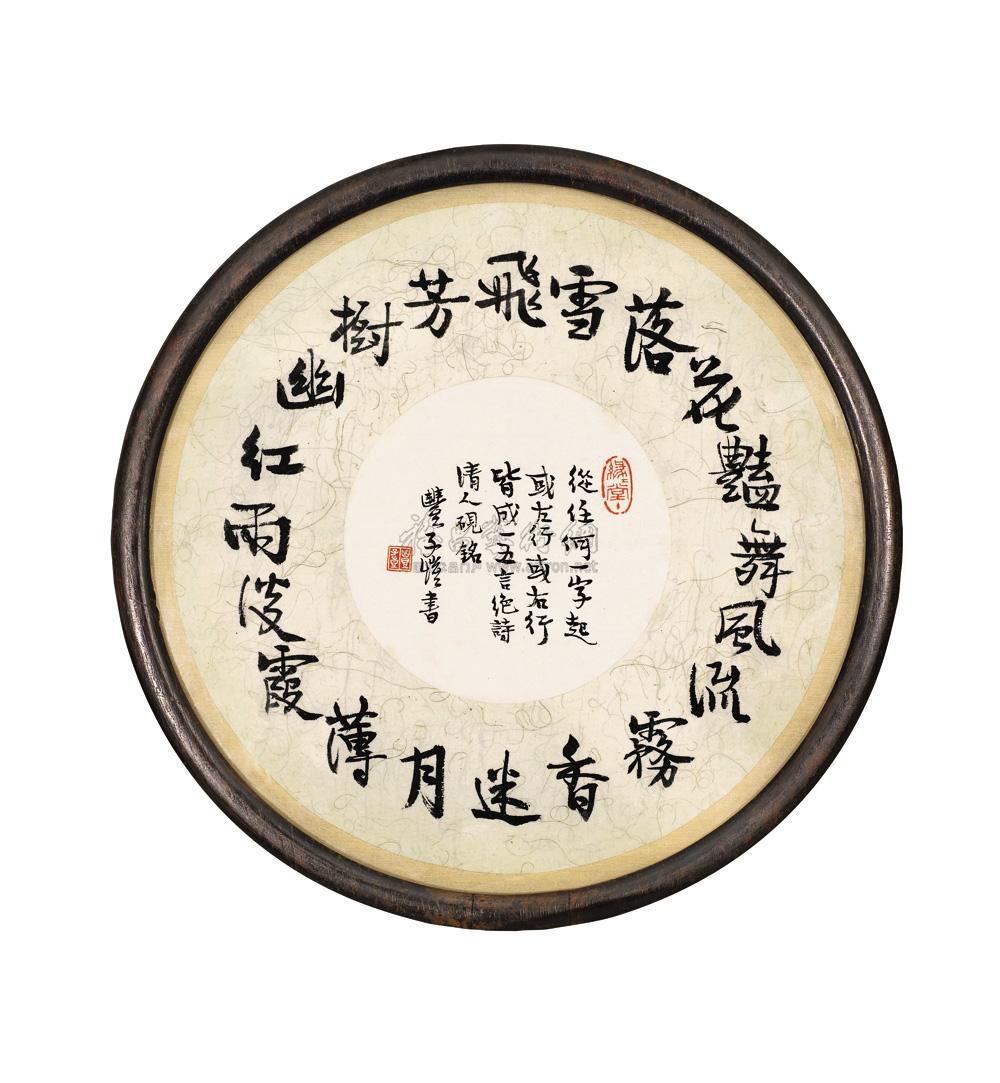 飛雪落花豔舞風流霧香迷月薄霞淡雨紅幽樹芳
從任何一字起
或左行或右行
皆成一五言绝詩
清人硯銘
豐子愷書
緣堂